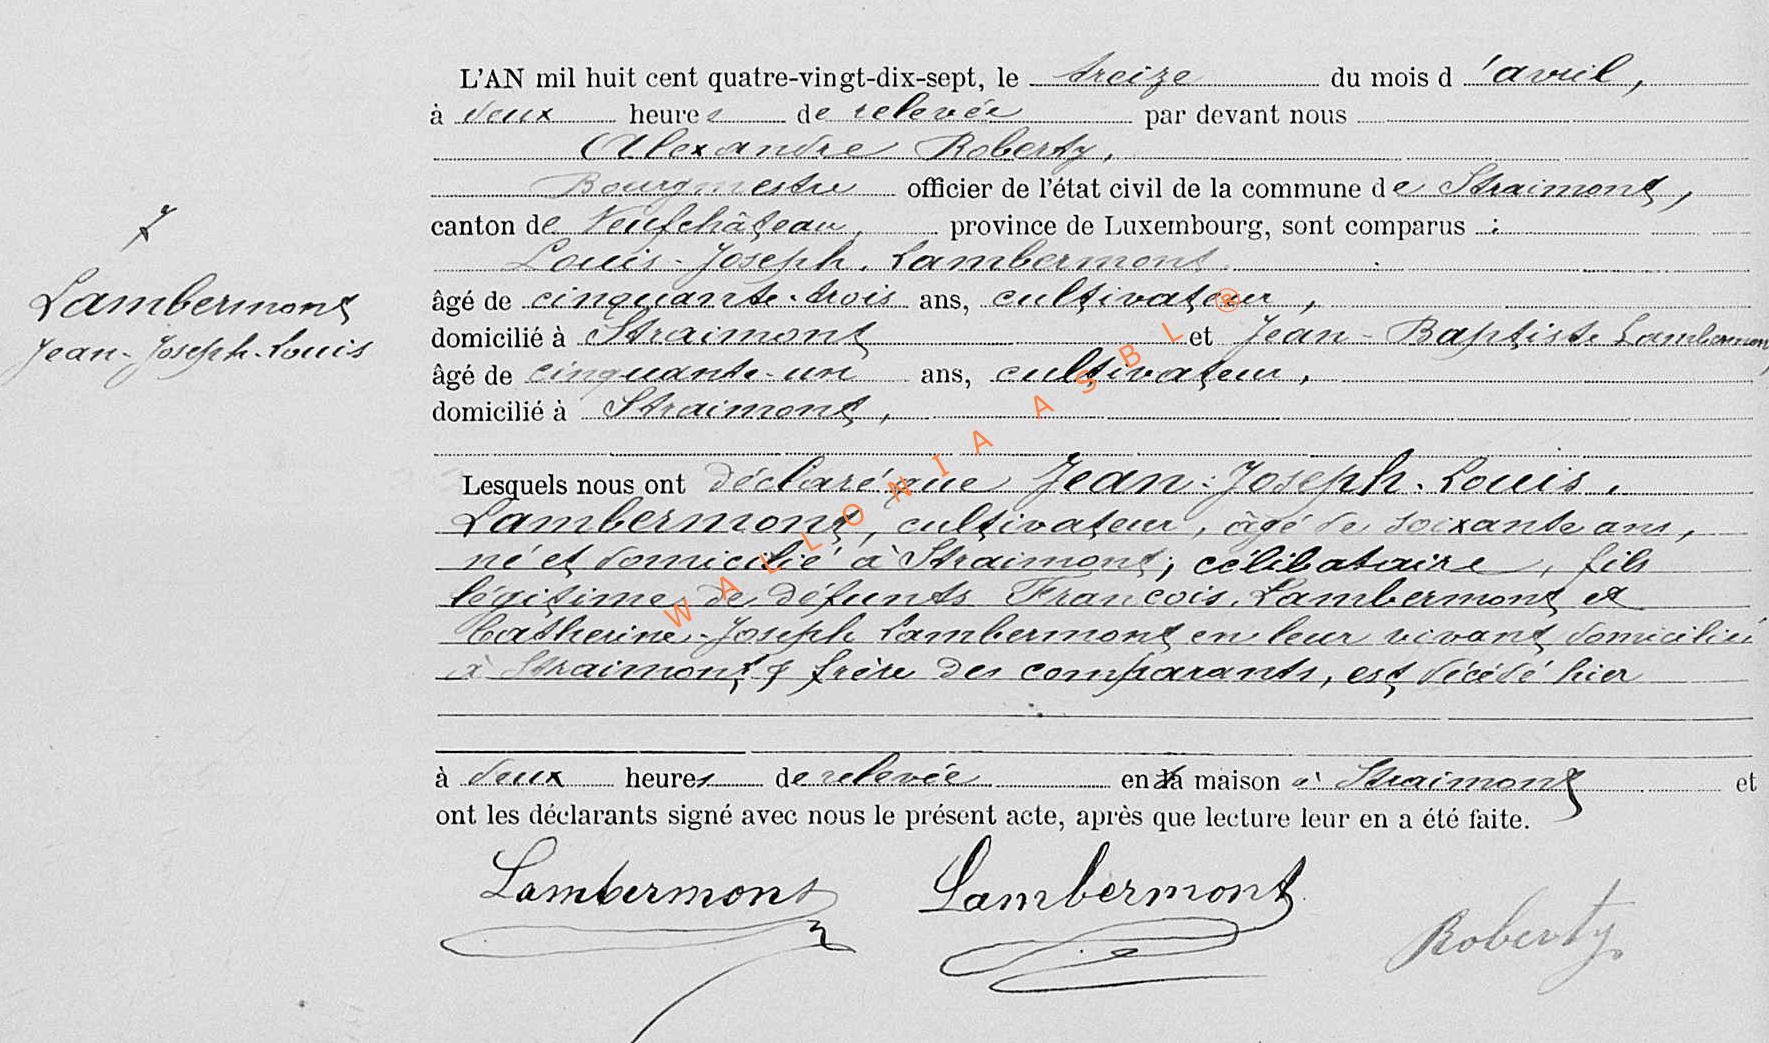 L'AN mil huit cent quatre-vingt-dix-sept, le treize du mois d'avril,
à deux heures de relevée par devant nous
Alexandre Roberty,
Bourgmestre officier de l'état civil de la commune de Straimont,
canton de Neufchâteau, province de Luxembourg, sont comparus :
Louis-Joseph Lambermont
âgé de cinquante-trois ans, cultivateur,
domicilié à Straimont et Jean-Baptiste Lambermont,
âgé de cinquante-un ans, cultivateur,
domicilié à Straimont,
7
Lambermont
Jean-Joseph-Louis
Lesquels nous ont déclaré que Jean-Joseph-Louis
Lambermont, cultivateur, âgé de soixante ans,
né et domicilié à Straimont, célibataire, fils
légitime de défunts François Lambermont et
Catherine-Joseph Lambermont en leur vivant domiciliés
à Straimont & frère des comparants, est décédé hier
à deux heures de relevée en sa maison à Straimont et
ont les déclarants signé avec nous le présent acte, après que lecture leur en a été faite.
Lambermont Lambermont Roberty
WALLONIA ASBL ®